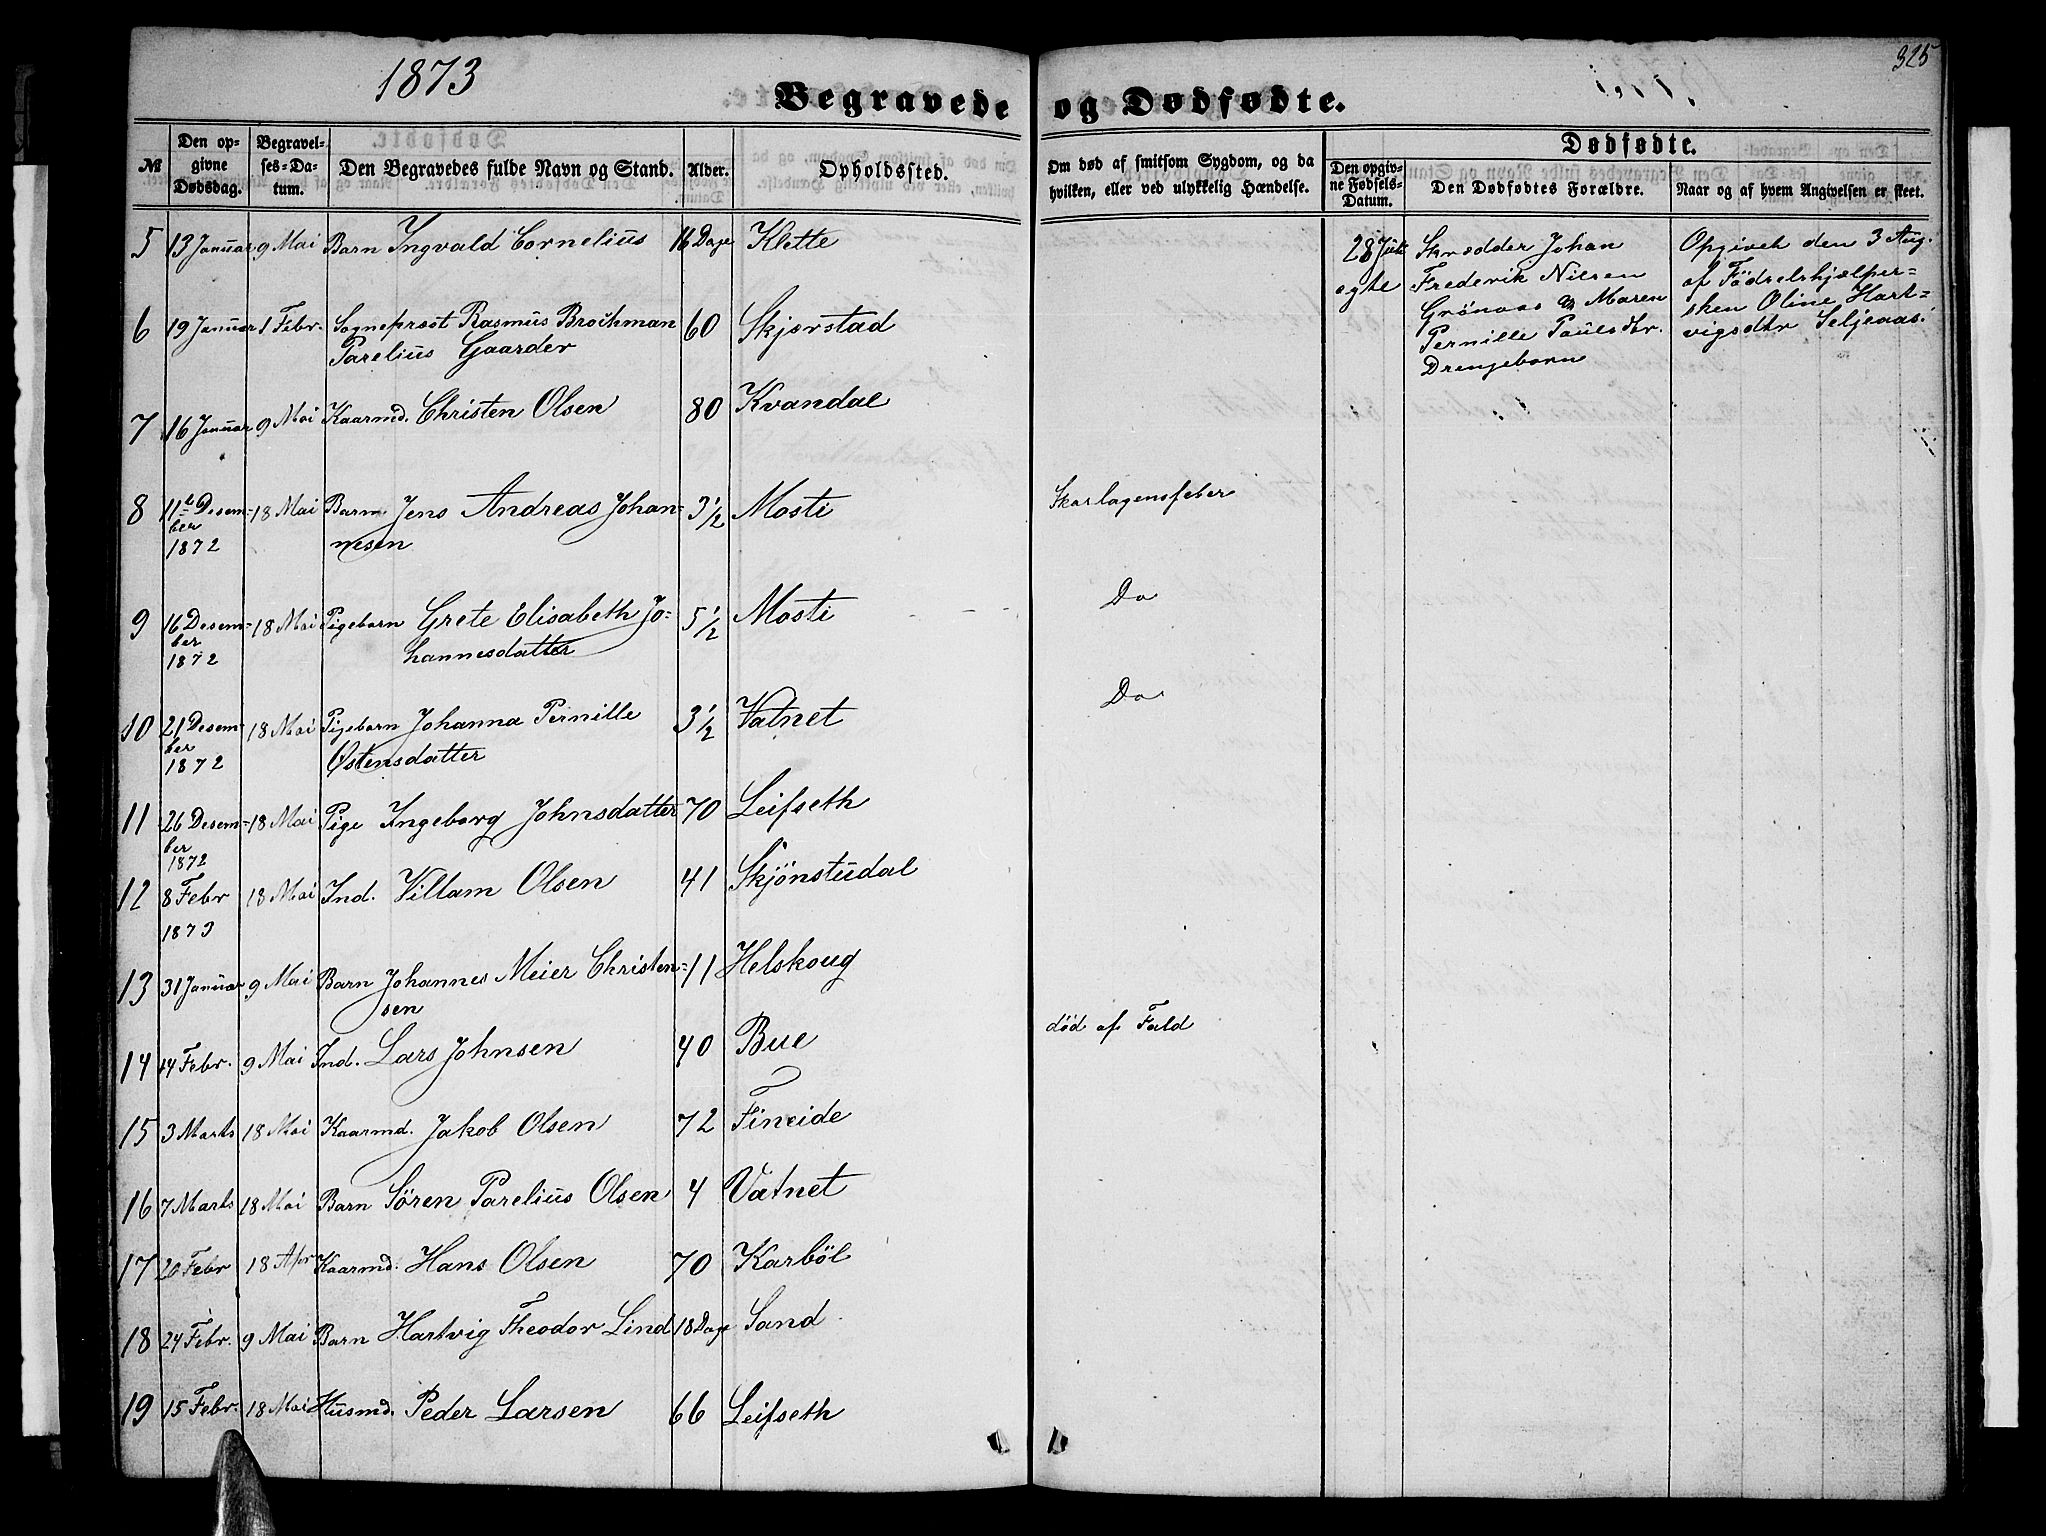 1873
325
Begravede og Dødfødte.
№
Den opgivne Dødsdag.
Begravelses-Datum.
Den Begravedes fulde Navn og Stand.
Alder.
Opholdssted.
Om død af smitsom Sygdom, og da hvilken, eller ved ulykkelig Hændelse.
Dødfødte.
Den opgivne Fødsels-Datum.
Den Dødfødtes Forældre.
Naar og af hvem Angivelsen er skeet.
5 13 Januar 9 Mai Barn Ingvald Cornelius 16 Dage Klette
6 19 Januar 1 Febr. Sogneprest Rasmus Brochman 60 Skjerstad
Parelius Gaarder
7 16 Januar 9 Mai Kaarmd. Christen Olsen 80 Kvandal
8 11te Desem= 18 Mai Barn Jens Andreas Johan= 3 1/2 Mosti Skarlagensfeber
ber nesen
1872
9 16 Desem= 18 Mai Pigebarn Grete Elisabeth Jo= 5 1/2 Mosti Do
ber hannesdatter
1872
10 21 Desem= 18 Mai Pigebarn Johanna Pernille 3 1/2 Vatnet Do
ber Østensdatter
1872
11 26 Desem= 18 Mai Pige Ingeborg Johnsdatter 70 Leifseth
ber
1872
12 8 Febr 18 Mai Ind. Villam Olsen 41 Skjönstudal
1873
13 31 Januar 9 Mai Barn Johannes Meier Christen= 11 Helskoug
sen
14 14 Febr. 9 Mai Ind. Lars Johnsen 40 Bue død af Fald
15 3 Marts 18 Mai Kaarmd. Jakob Olsen 72 Fineide
16 7 Marts 18 Mai Barn Søren Parelius Olsen 4 Vatnet
17 20 Febr 18 Apr Kaarmd. Hans Olsen 70 Karböl
18 24 Febr. 9 Mai Barn Hartvig Theodor Lind 18 Dage Sand
19 15 Febr. 18 Mai Husmd. Peder Larsen 66 Leifseth
28 Juli Skrædder Johan
egte Frederik Nilsen
Grönaas og Maren
Pernille Paulsdtr.
Drengebarn
Opgivet den 3 Aug.
af Födselshjælper=
sken Oline Hart=
vigsdtr Seljeaas.